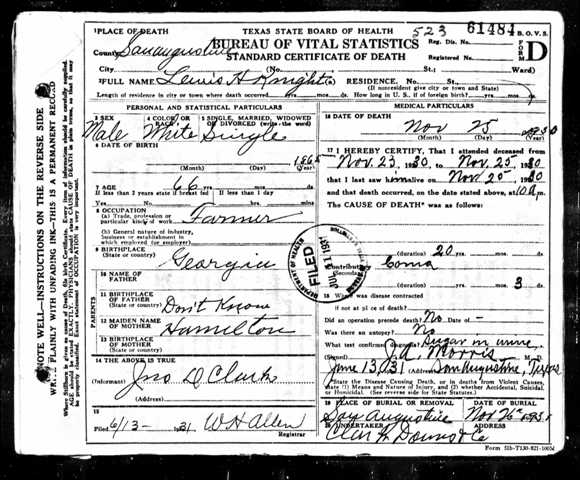 TEXAS STATE BOARD OF HEALTH
BUREAU OF VITAL STATISTICS
STANDARD CERTIFICATE OF DEATH
523 61484 B. O. V. S.
Reg. Dis. No.
Registered No.
FORM D
1 PLACE OF DEATH
County San augustine
City (No. St.; Ward)
2 FULL NAME Lewis H Knight RESIDENCE. No. St.
(If nonresident give city or town and State)
Length of residence in city or town where death occurred yrs. mos. ds. How long in U. S., if of foreign birth? yrs. mos. ds.
PERSONAL AND STATISTICAL PARTICULARS
3 SEX
Male
4 COLOR or RACE
White
5 SINGLE, MARRIED, WIDOWED or DIVORCED (write the word)
Single
6 DATE OF BIRTH
(Month) (Day) (Year)
7 AGE 66 yrs. mos. ds.
If less than 2 years state if breast fed If less than 1 day
Yes No hrs. min.
8 OCCUPATION
(a) Trade, profession or particular kind of work Farmer
(b) General nature of industry, business or establishment in which employed (or employer)
9 BIRTHPLACE
(State or country) Georgia
PARENTS
10 NAME OF FATHER
11 BIRTHPLACE OF FATHER
(State or country) Don't Know
12 MAIDEN NAME OF MOTHER Hamilton
13 BIRTHPLACE OF MOTHER
(State or country)
14 THE ABOVE IS TRUE
(Informant) Jno D Clark
(Address)
15
Filed 6/13- 1931 W H Allen
Registrar
MEDICAL PARTICULARS
16 DATE OF DEATH
Nov 25 1930
(Month) (Day) (Year)
17 I HEREBY CERTIFY, That I attended deceased from
Nov. 23, 1930 to Nov. 25, 1930
that I last saw him alive on Nov 25 1930
and that death occurred, on the date stated above, at 10 m.
The CAUSE OF DEATH was as follows:
(duration) 20
Contributory Coma
(Secondary)
(duration) yrs. mos. 3 ds.
18 Where was disease contracted
if not at place of death?
Did an operation precede death? No Date of -
Was there an autopsy? No
What test confirmed diagnosis? Sugar in urine
(Signed) J. A. Morris M. D.
June 13, 1931 San Augustine, Texas
State the Disease Causing Death, or in deaths from Violent Causes, state (1) Means and Nature of Injury, and (2) whether Accidental, Suicidal, or Homicidal. (See reverse side for State Statutes.)
19 PLACE OF BURIAL OR REMOVAL DATE OF BURIAL
San Augustine Nov 26 1930
20 UNDERTAKER ADDRESS
Clark Downs & Co
FILED
WRITE PLAINLY WITH UNFADING INK—THIS IS A PERMANENT RECORD
NOTE WELL—INSTRUCTIONS ON THE REVERSE SIDE